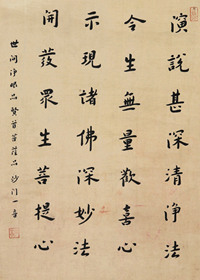 演說甚深清淨法
令生無量歡喜心
示現諸佛深妙法
開發眾生菩提心
世間淨眼品賢首菩薩品 沙門一音